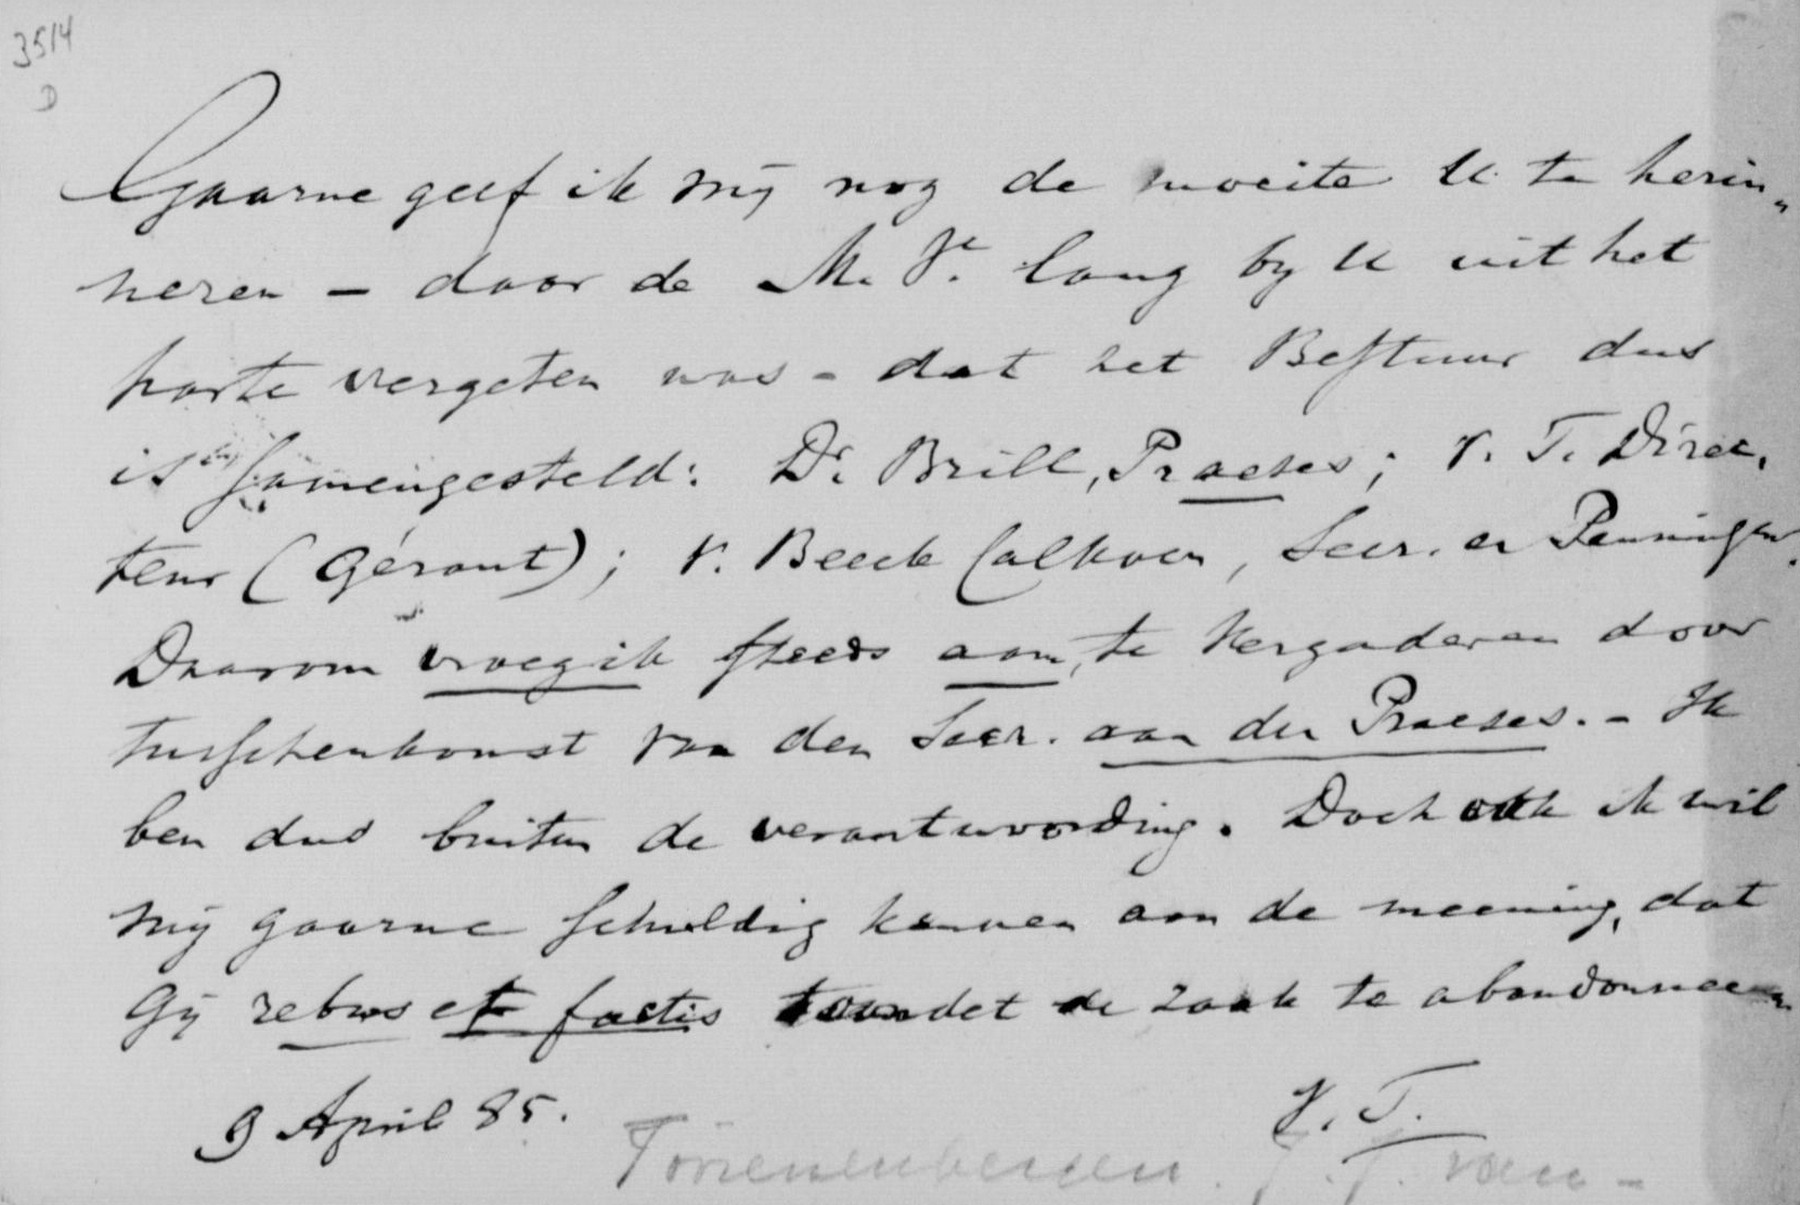 3514
D
Gaarne geef ik mij nog de moeite U te herin„
neren – daar de M. Ve. lang by U uit het
harte vergeten was – dat het Bestuur dus
is samengesteld: Dr. Brill, Praeses; v. T. Direc„
teur (Gérant); v. Beeck Calkoen, Secr. en Penningm.
Daarom vroeg ik steeds aan, te vergaderen door
tusschenkomst van den Secr. aan den Praeses. – Ik
ben dus buiten de verantwoording. Doch ook ik wil
mij gaarne schuldig kennen aan de meening, dat
Gij rebus et factis toondet de zaak te abandonneeren
9 April 85. v. T.
Toorenenbergen. J. J. van –